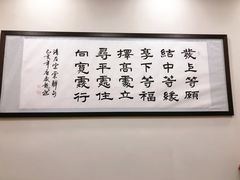 發上等願
結中等緣
享下等福
擇高處立
尋平處住
向寬處行
清左宗棠聯句